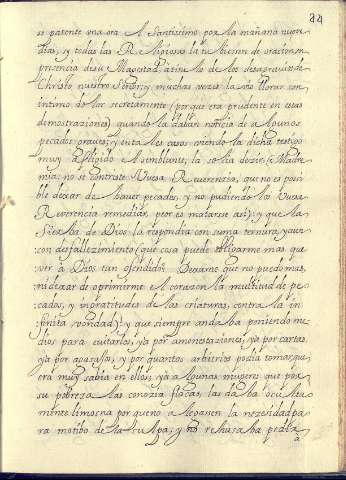 24
se patente una ora el Santissimo por la mañana nueve
dias, y todas las Religiosas la tubiesen de oracion en
presencia de su Magestad à titulo de los desagravios de
Christo nuestro Señor; y muchas veces la vio llorar con
intimo dolor secretamente (por que era prudente en esas
demostraciones) quando la daban noticia de algunos
pecados graves; y en tales casos viendo la dicha testigo
muy afligido el semblante, la solia decir: Madre
mia, no se contriste Vuesa Reverencia, que no es posi-
ble dexar de haver pecados, y no pudiendo la Vuesa
Reverencia remediar, peor es matarse asi: y que la
Sierba de Dios la respondia con suma ternura, y aun
con desfallecimiento (que cosa puede aliviarme mas que
ver à Dios tan ofendido? Dexame que no puedo mas,
ni dexar de oprimirme el corazon la multitud de pe-
cados, y ingratitudes de las criaturas, contra la in-
finita vondad): y que siempre andaba poniendo me-
dios para evitarlos, yà por amonestaciones, yà por cartas
yà por agasajos, y por quantos arbitrios podia tomar, que
era muy sabia en ellos, y à algunas mugeres que por
su pobreza las conozia flacas, las daba oculta-
mente limosna por que no alegasen la nezesidad pa-
ra motibo de la culpa; y no rehusaba pedirla
à